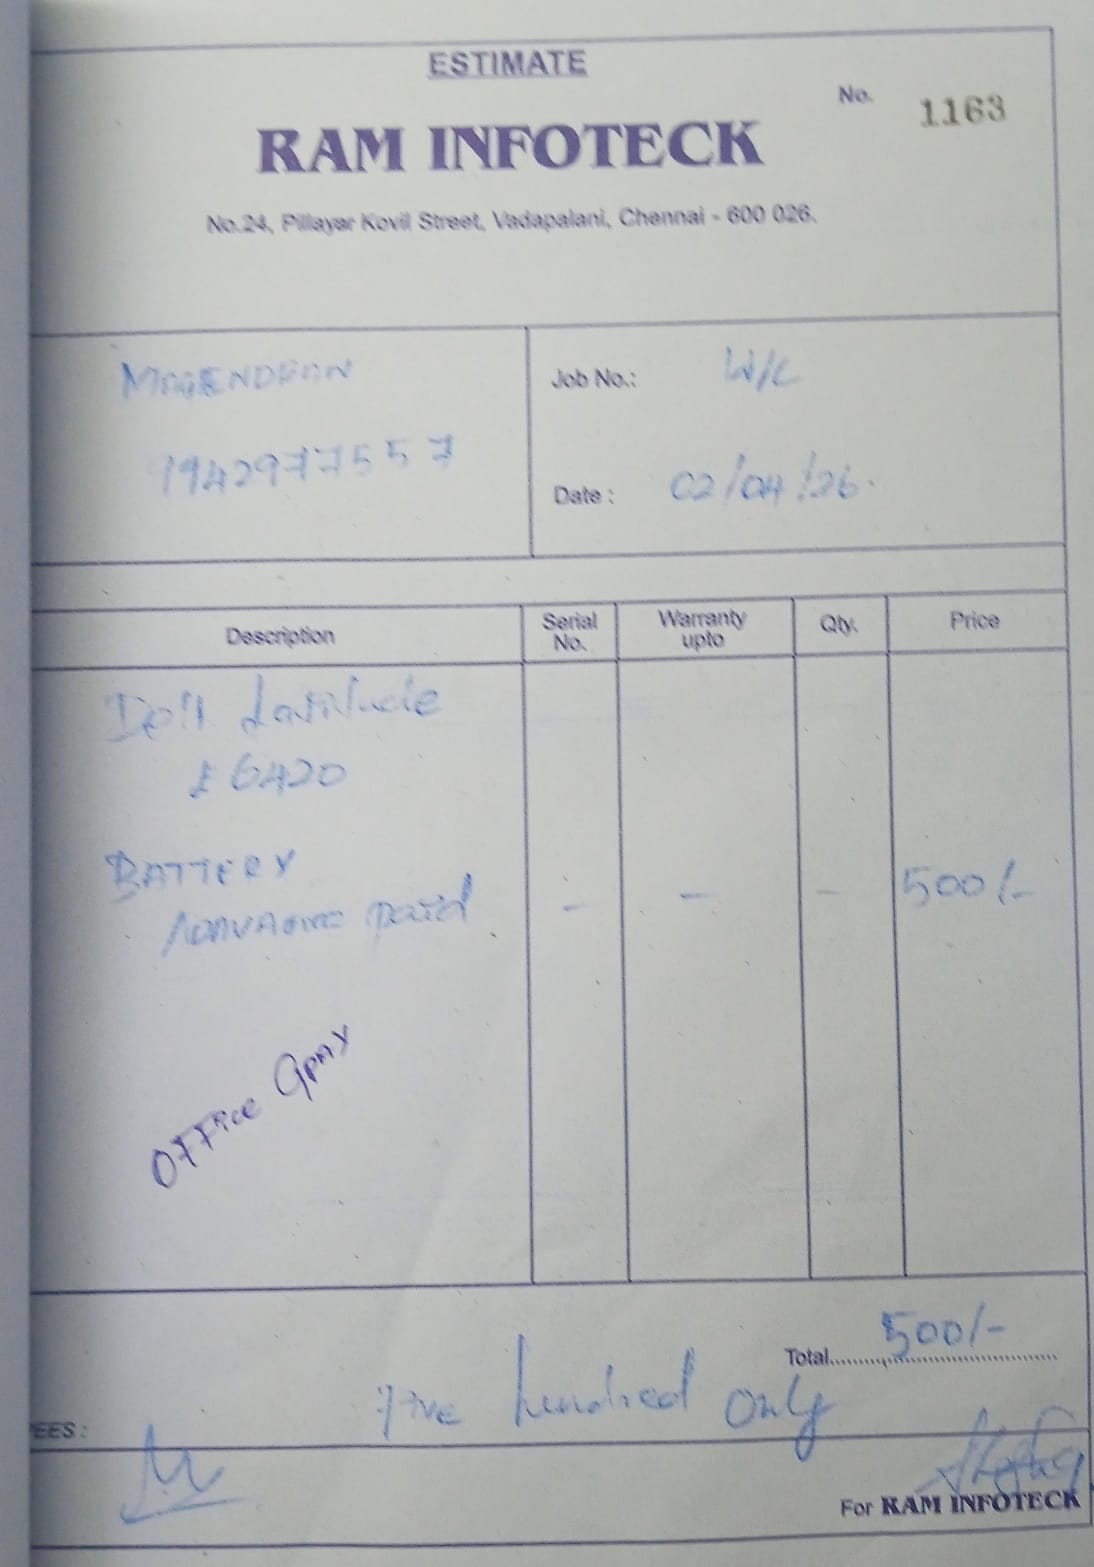 ESTIMATE
No. 1163
RAM INFOTECK
No.24, Pillayar Kovil Street, Vadapalani, Chennai - 600 026.
MAGENDRAN
Job No.: W/C
7942977557
Date : 02/04/26.
Description Serial No. Warranty upto Qty. Price
Dell Latitude
E6420
BATTERY - - - 500/-
paid
OFFice Gpay
Total 500/-
EES : Five hundred only
For RAM INFOTECK